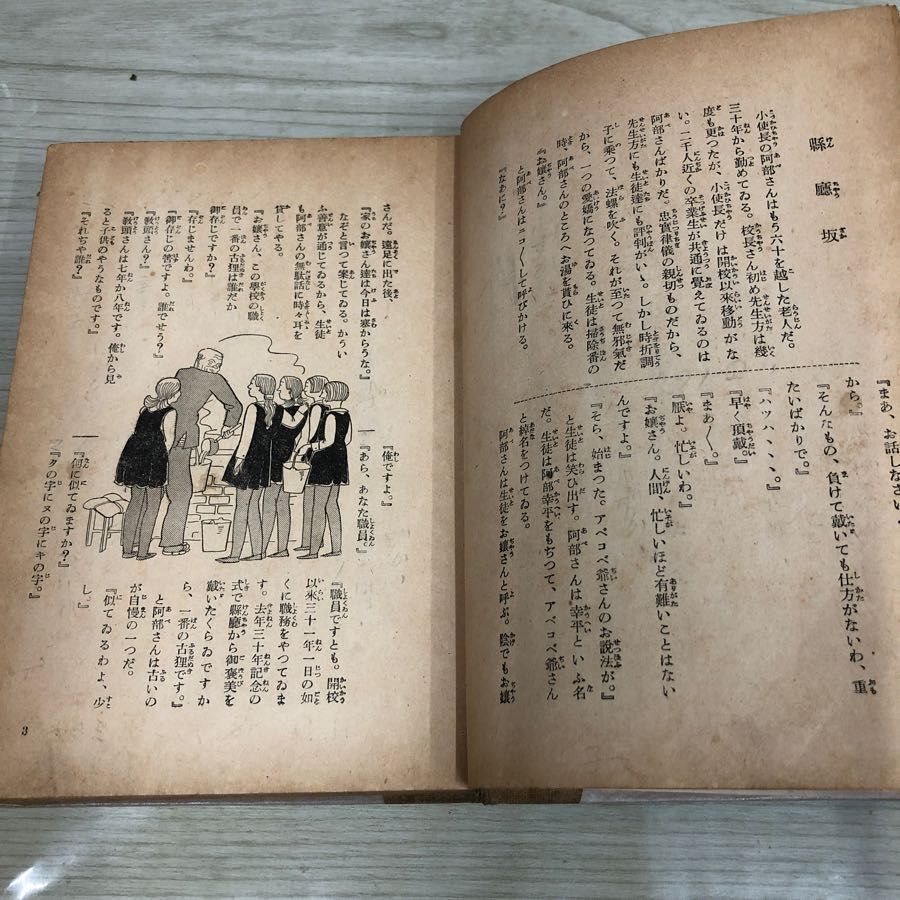 縣廳坂
小使長の阿部さんはもう六十を越した老人だ。
三十年から勤めてゐる。校長さん初め先生方は幾
度も更つたが、小使長だけは開校以來移動がな
い。二千人近くの卒業生が共通に覺えてゐるのは
阿部さんばかりだ。忠實律儀の親切ものだから、
先生方にも生徒達にも評判がいゝ。しかし時折調
子に乘つて、法螺を吹く。それが至つて無邪氣だ
から、一つの愛嬌になつてゐる。生徒は掃除番の
時、阿部さんのところへお湯を貰ひに來る。
『お孃さん。』
と阿部さんはニコ〳〵して呼びかける。
『なあに？』
『まあ、お話しなさい
から。』
『そんなもの、負けて戴いても仕方がないわ、重
たいばかりで。』
『ハツハヽヽヽ。』
『早く頂戴。』
『まあ〳〵。』
『厭よ。忙しいわ。』
『お孃さん。人間、忙しいほど有難いことはない
んですよ。』
『そら、始まつた。アベコベ爺さんのお說法が。』
と生徒は笑ひ出す。阿部さんは幸平といふ名
だ。生徒は阿部幸平をもぢつて、アベコベ爺さん
と綽名をつけてゐる。
阿部さんは生徒をお孃さんと呼ぶ。陰でもお孃
さんだ。遠足に出た後、
『家のお孃さん達は今日は塞からうな。』
なぞと言つて案じてゐる。かうい
ふ善意が通じてゐるから、生徒
も阿部さんの無駄話に時々耳を
貸してやる。
『お孃さん、この學校の職
員で一番の古狸は誰だか
御存じですか？』
『存じませんわ。』
『御存じの筈ですよ。誰でせう？』
『敎頭さん？』
『敎頭さんは七年か八年です。俺から見
ると子供のやうなものです。』
『それぢや誰？』
『俺ですよ。』
『あら、あなた職員？』
『職員ですとも。開校
以來三十一年一日の如
くに職務をやつてゐま
す。去年三十年記念の
式で縣廳から御褒美を
戴いたくらゐですか
ら、一番の古狸です。』
と阿部さんは古いの
が自慢の一つだ。
『似てゐるわよ、少
し。』
『何に似てゐますか？』
『タの字にヌの字にキの字。』
3